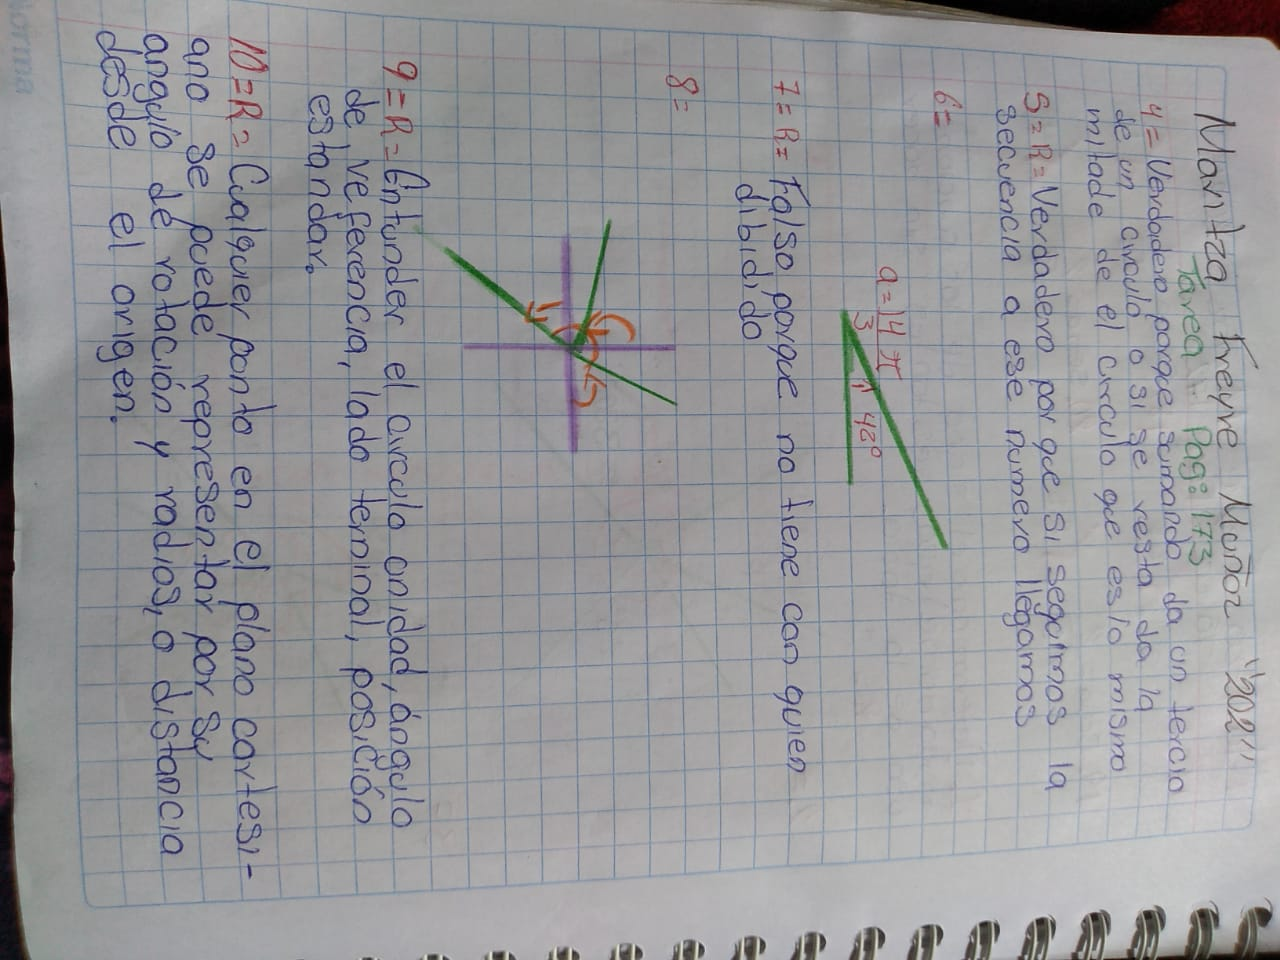 Maritza Freyre Muñoz "202"
Tarea Pag: 173
4= Verdadero porque sumando da un tercio
de un circulo o si se resta da la
mitade de el circulo que es lo mismo
5=R= Verdadero por que si seguimos la
secuencia a ese numero llegamos
6=
a= 14/3 π
42°
7=R= Falso porque no tiene con quien
dibidido
8=
9=R= Entunder el circulo unidad, ángulo
de referencia, lado terminal, posición
estandar.
10=R= Cualquier punto en el plano cartesi-
ano se puede representar por su
angulo de rotación y radios, o distancia
desde el origen.
Norma